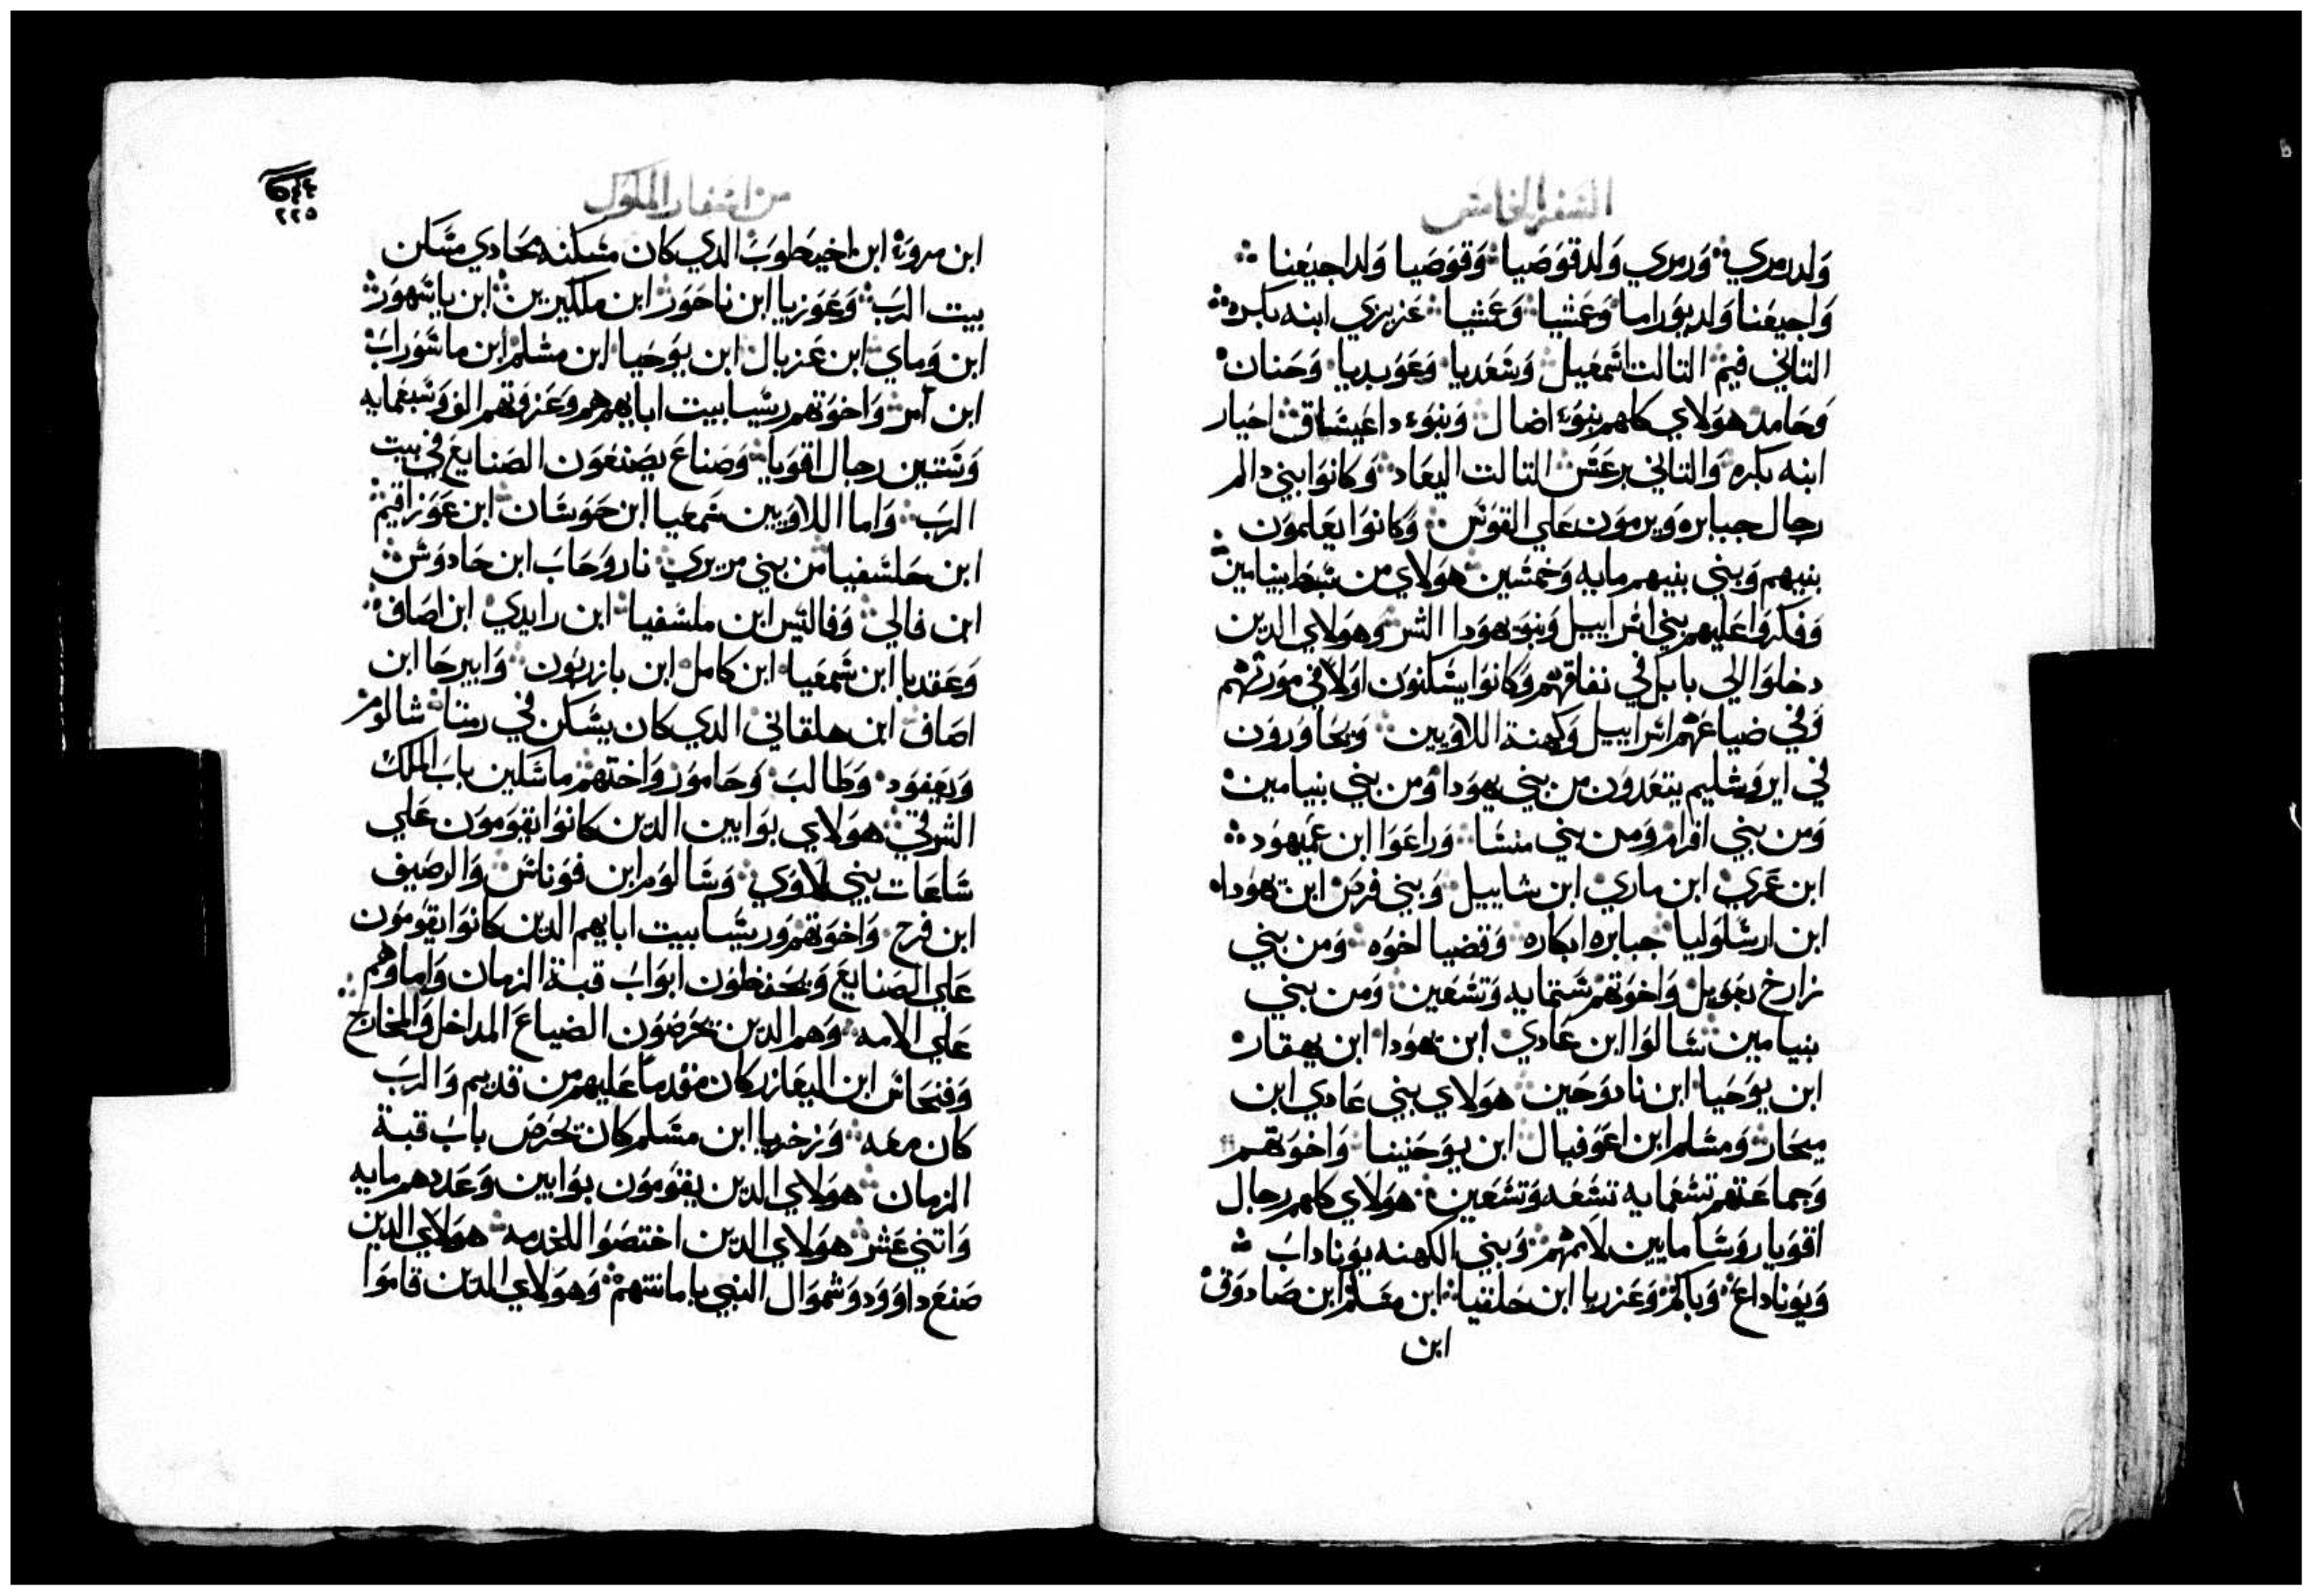 السفر الخامس
ولد رمري وزمري ولد قوصيا وقوصيا ولد اجيعنا
واجيعنا ولد بوراما وعشيا وعشيا عزيزي ابنه بكره
التاني فيم التالت اشمعيل وشعديا وعوبديا وحنان
وحامد هولاي كلهم بنوء اضال وبنوء داعيشاق اخيار
ابنه بكره والتاني برعش التالت اليعاد وكانوا بني دالم
رجال جبابره ويرمون علي القوس وكانوا يعلمون
بنيهم وبني بنيهم مايه وخمسين هولاي من شبط بنيامين
وفكروا عليهم بني اسراييل وبنو يهودا الشر وهولاي الدين
دخلوا الي بابل في نفاقهم وكانوا يسكنون اولا في مورثهم
وفي ضياعهم اسراييل وكهنة اللاويين ويجاورون
في ايروشليم يتعدون من بني يهودا ومن بني بنيامين
ومن بني افرام ومن بني منشا وراعوا ابن عميهود
ابن عمري ابن ماري ابن شاييل وبني فرص ابن يهودا
ابن ارشلوليا جبابره ابكاره وقضيا اخوه ومن بني
زارخ يعويل واخوتهم ستمايه وتسعين ومن بني
بنيامين شالوا ابن عادي ابن يهودا ابن يهقار
ابن يوحيا ابن نادوحين هولاي بني عادي ابن
ميحار ومشلم ابن اعوفيال ابن يوحنينا واخوتهم
وجماعتهم تسعمايه تسعه وتسعين هولاي كلهم رجال
اقويا روسا مايين لامهم وبني الكهنه يوناداب
ويوناداع وباكم وعزريا ابن حلقيا ابن مشلم ابن صادوق
ابن
من اسفار الملوك
٢٢٥
ابن مروة ابن اخيطوب الدي كان مسكنه بحادي مسكن
بيت الرب وعوزيا ابن ناحور ابن ملكيرين ابن ياشهور
ابن وماي ابن عزيال ابن يوحيا ابن مشلم ابن ماشوراب
ابن امر واخوتهم ريسا بيت اباهم هم وعزوتهم الف وسبعمايه
وستين رجال اقويا وصناع يصنعون الصنايع في بيت
الرب واما اللاويين شمعيا ابن حوشان ابن عوزاقيم
ابن حلشفيا من بني مريري ناروحاب ابن حادوش
ابن فالي وفالتيس ابن ملشفيا ابن رايدي ابن اصاف
وعقديا ابن شمعيا ابن كامل ابن بازريون وابيرحا ابن
اصاف ابن هلقاني الدي كان يسكن في رمتا شالوم
ويعفود وطالب وحامور واختهم ماسكين باب الملك
الشرقي هولاي بوابين الدين كانوا يقومون علي
شاعات بني لاوي وشالوم ابن فوناس والرصيف
ابن فرح واخوتهم وريسا بيت ابايهم الدين كانوا يقومون
علي الصنايع ويحفظون ابواب قبة الزمان واماوهم
علي الامه وهم الدين يحرضون الضياع المداخل والمخارج
وفنحاس ابن اليعازر كان مقدما عليهم من قديم والرب
كان معه وزخريا ابن مشلم كان يحرض باب قبة
الزمان هولاي الدين يقومون بوابين وعددهم مايه
واتني عشر هولاي الدين اختصوا للخدمه هولاي الدين
صنع داوود وشموال النبي بامانتهم وهولاي الدين قاموا